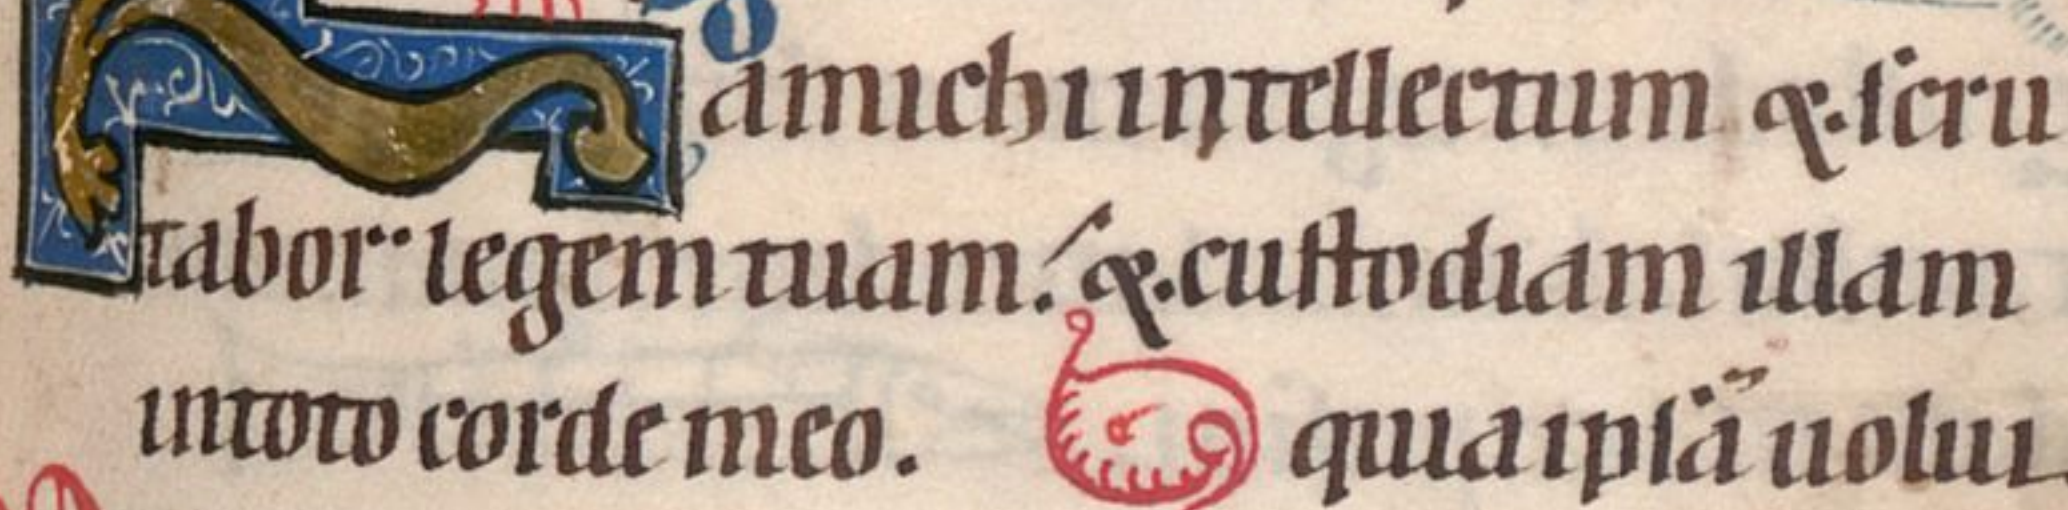 Da michi intellectum & scru
tabor legem tuam. & custodiam illam
in toto corde meo. quia ipsā uolui